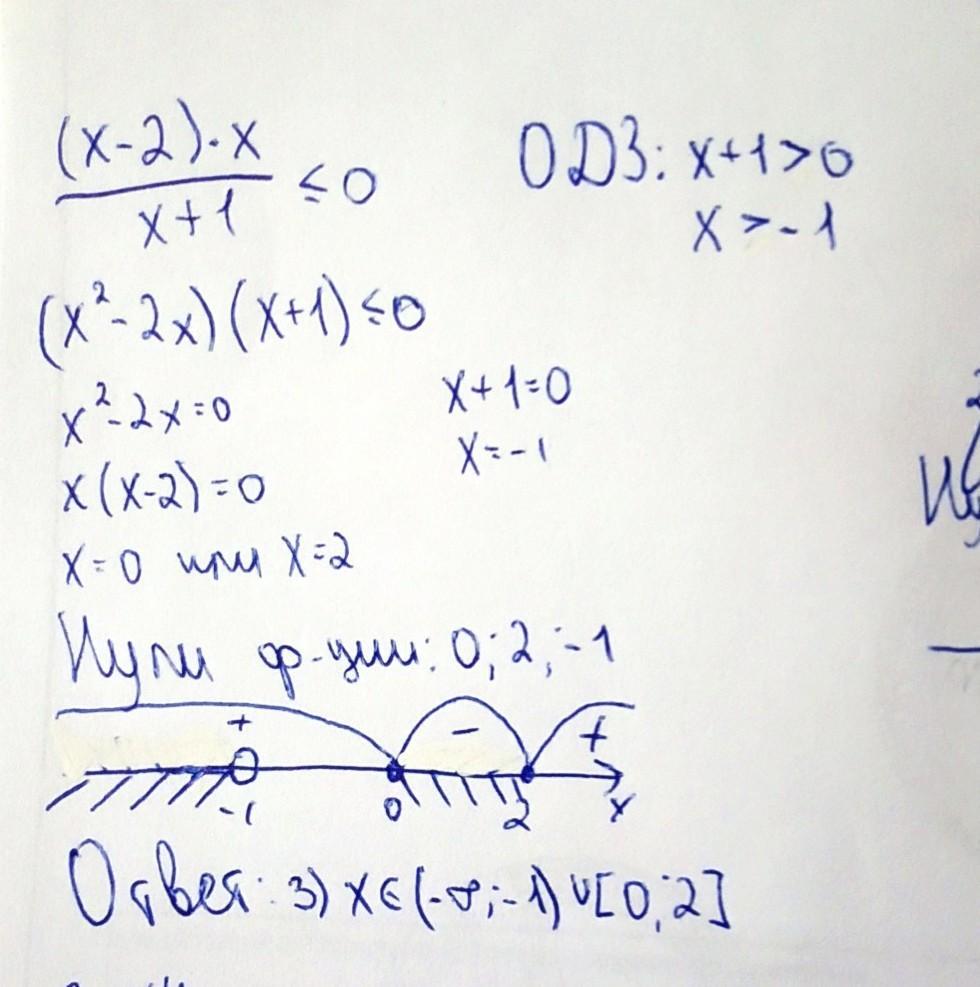 (x-2)·x
x+1
≤0
ОДЗ: x+1>0
x>-1
(x²-2x)(x+1)≤0
x²-2x=0
x+1=0
x(x-2)=0
x=-1
x=0 или x=2
Нули ф-ции: 0; 2; -1
+ - +
-1 0 2 x
Ответ: 3) x∈(-∞;-1)∪[0;2]